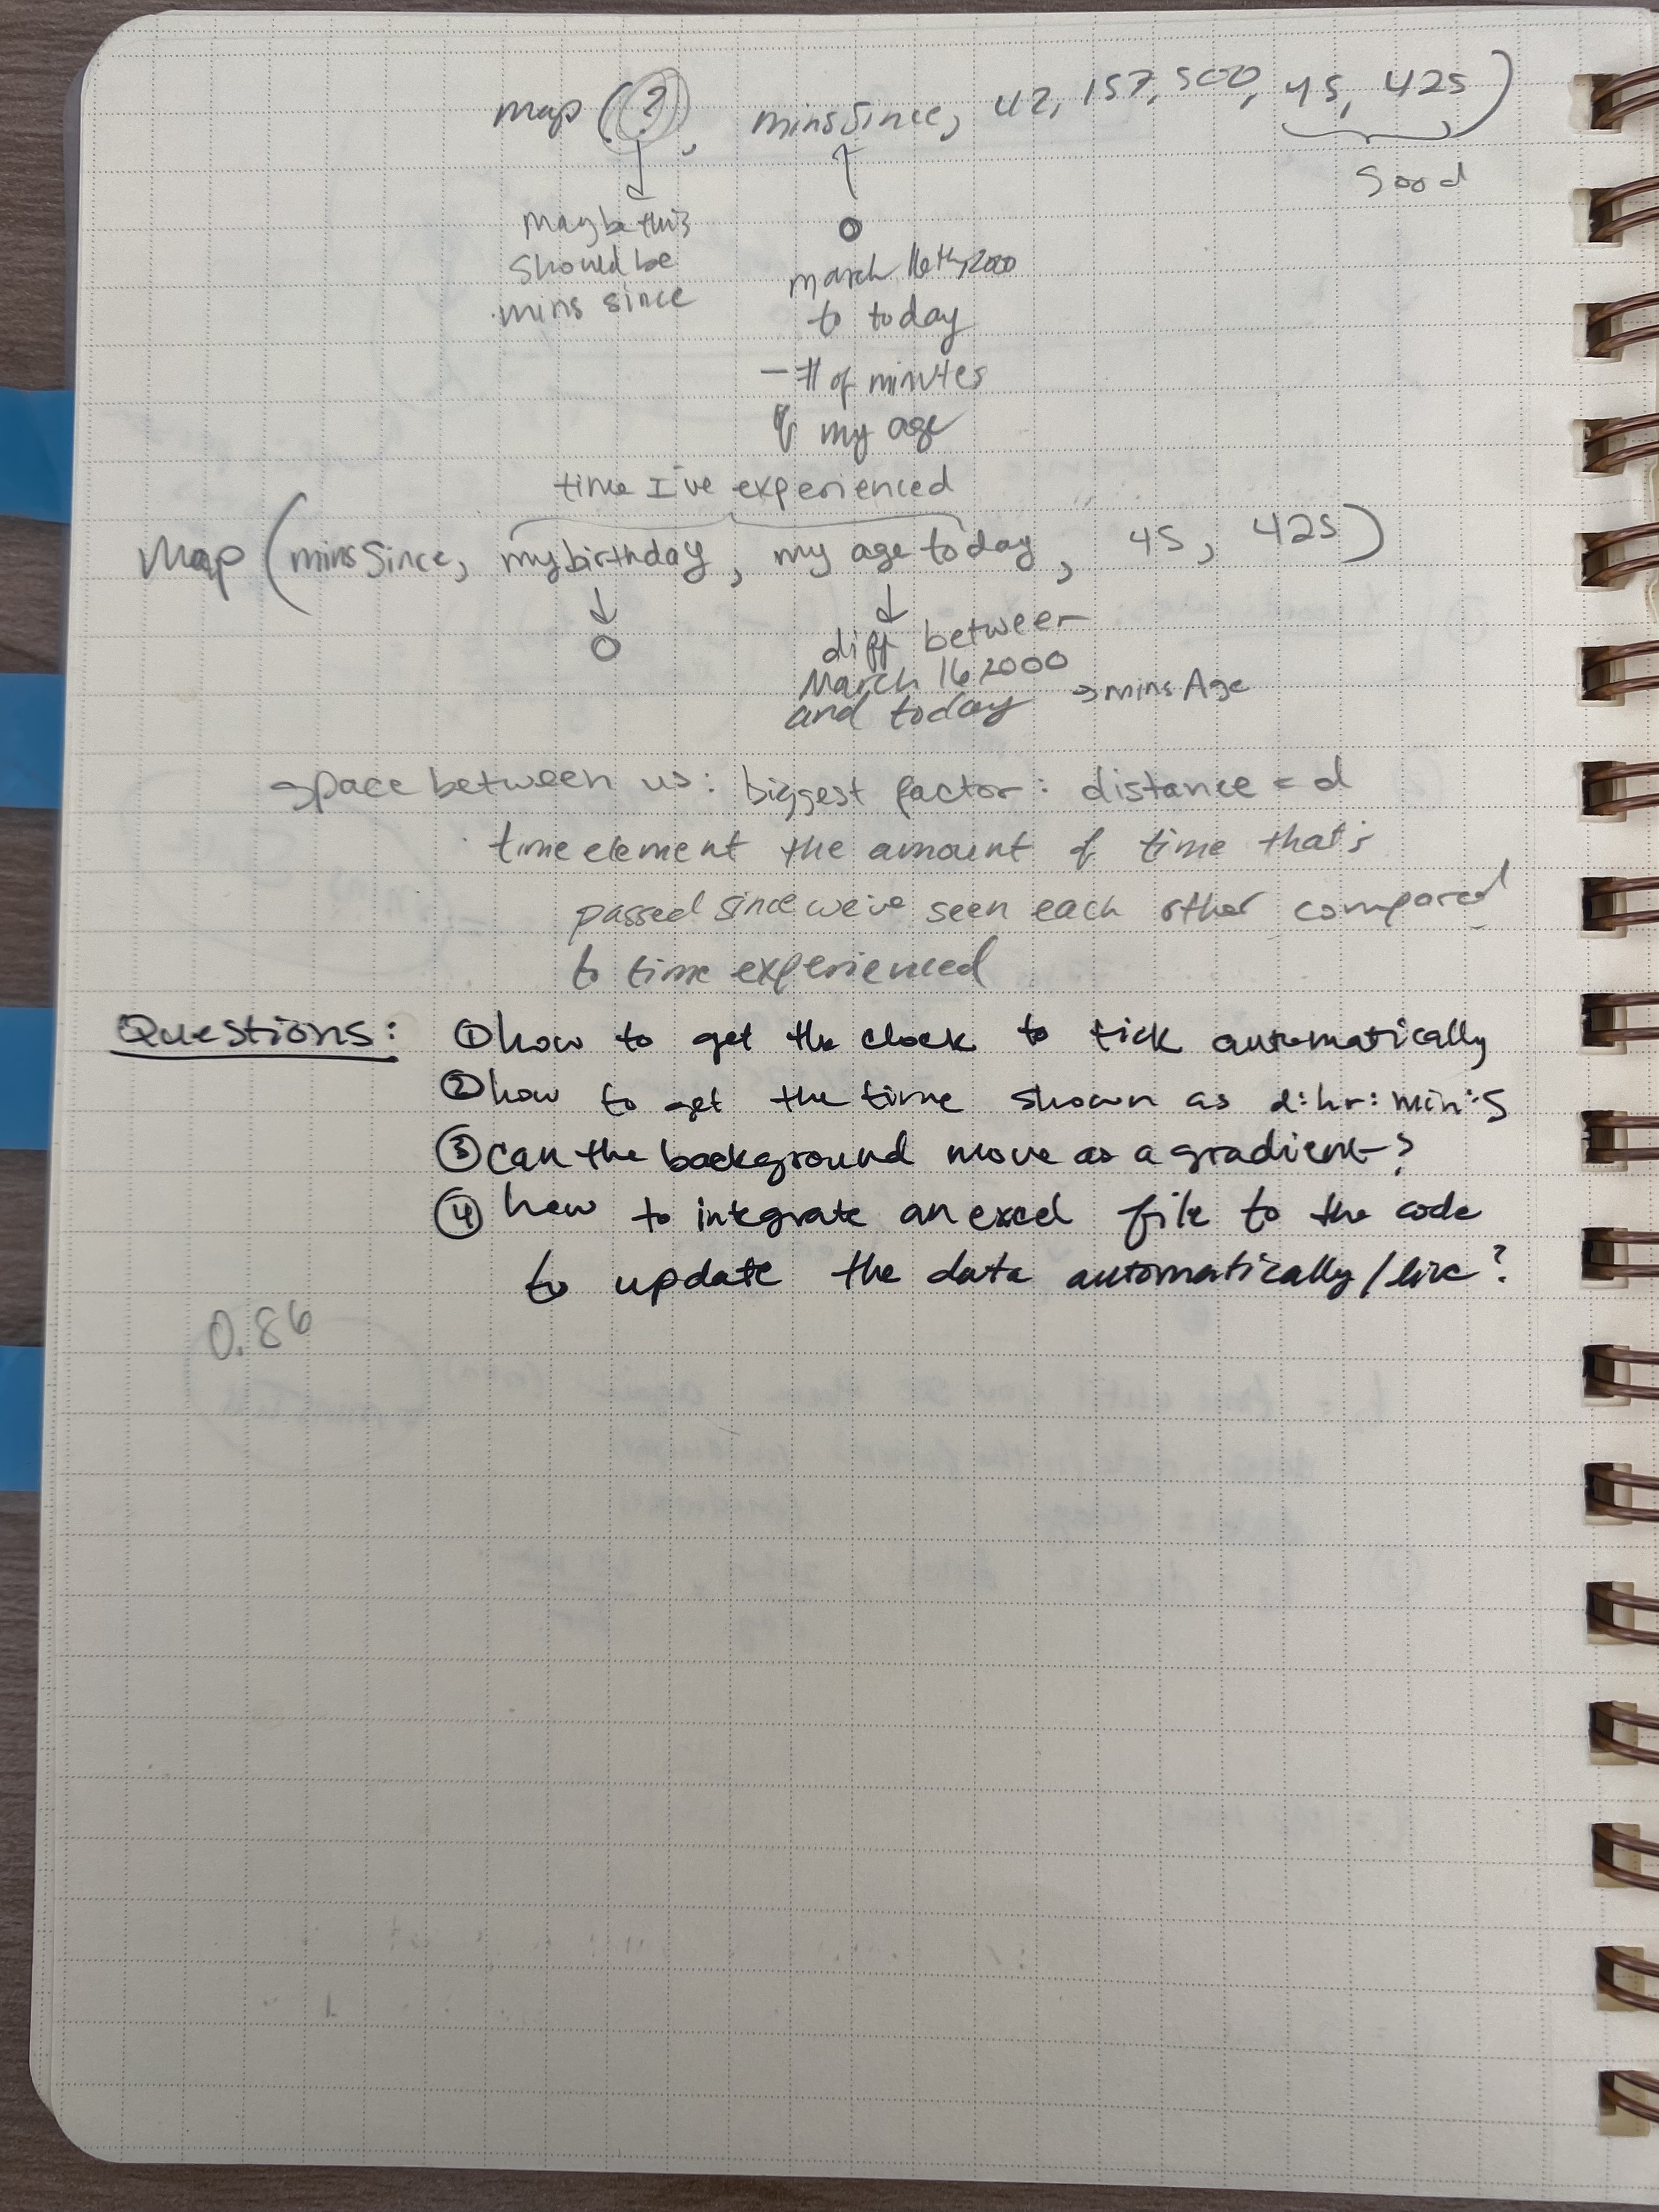 map (?), minsSince, 42, 157, 500, 45, 425)
good
maybe this
should be
mins since
0
march 16th, 2000
to today
- # of minutes
of my age
time I've experienced
Map (minsSince, my birthday, my age today, 45, 425)
0
diff between
March 16 2000
and today → mins Age
space between us: biggest factor: distance = d
time element the amount of time that's
passed since we've seen each other compared
to time experienced
Questions: ① how to get the clock to tick automatically
② how to get the time shown as d:hr:min:s
③ can the background move as a gradient?
④ how to integrate an excel file to the code
to update the data automatically/live?
0.86